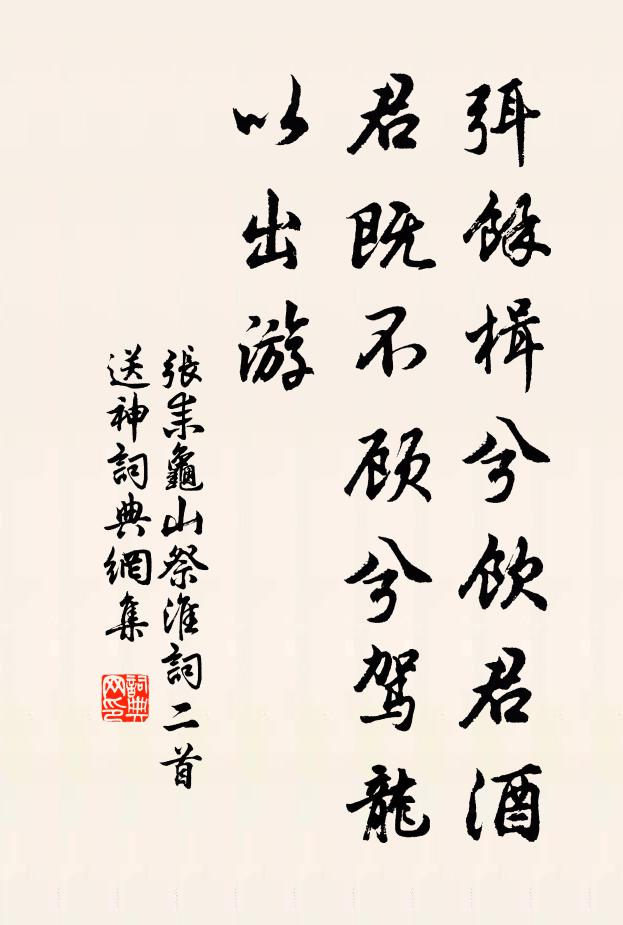 弭馀楫兮饮君酒
君既不顾兮驾龍
以出游
張耒龜山祭淮詞二首
送神詞典網集
詞典网印